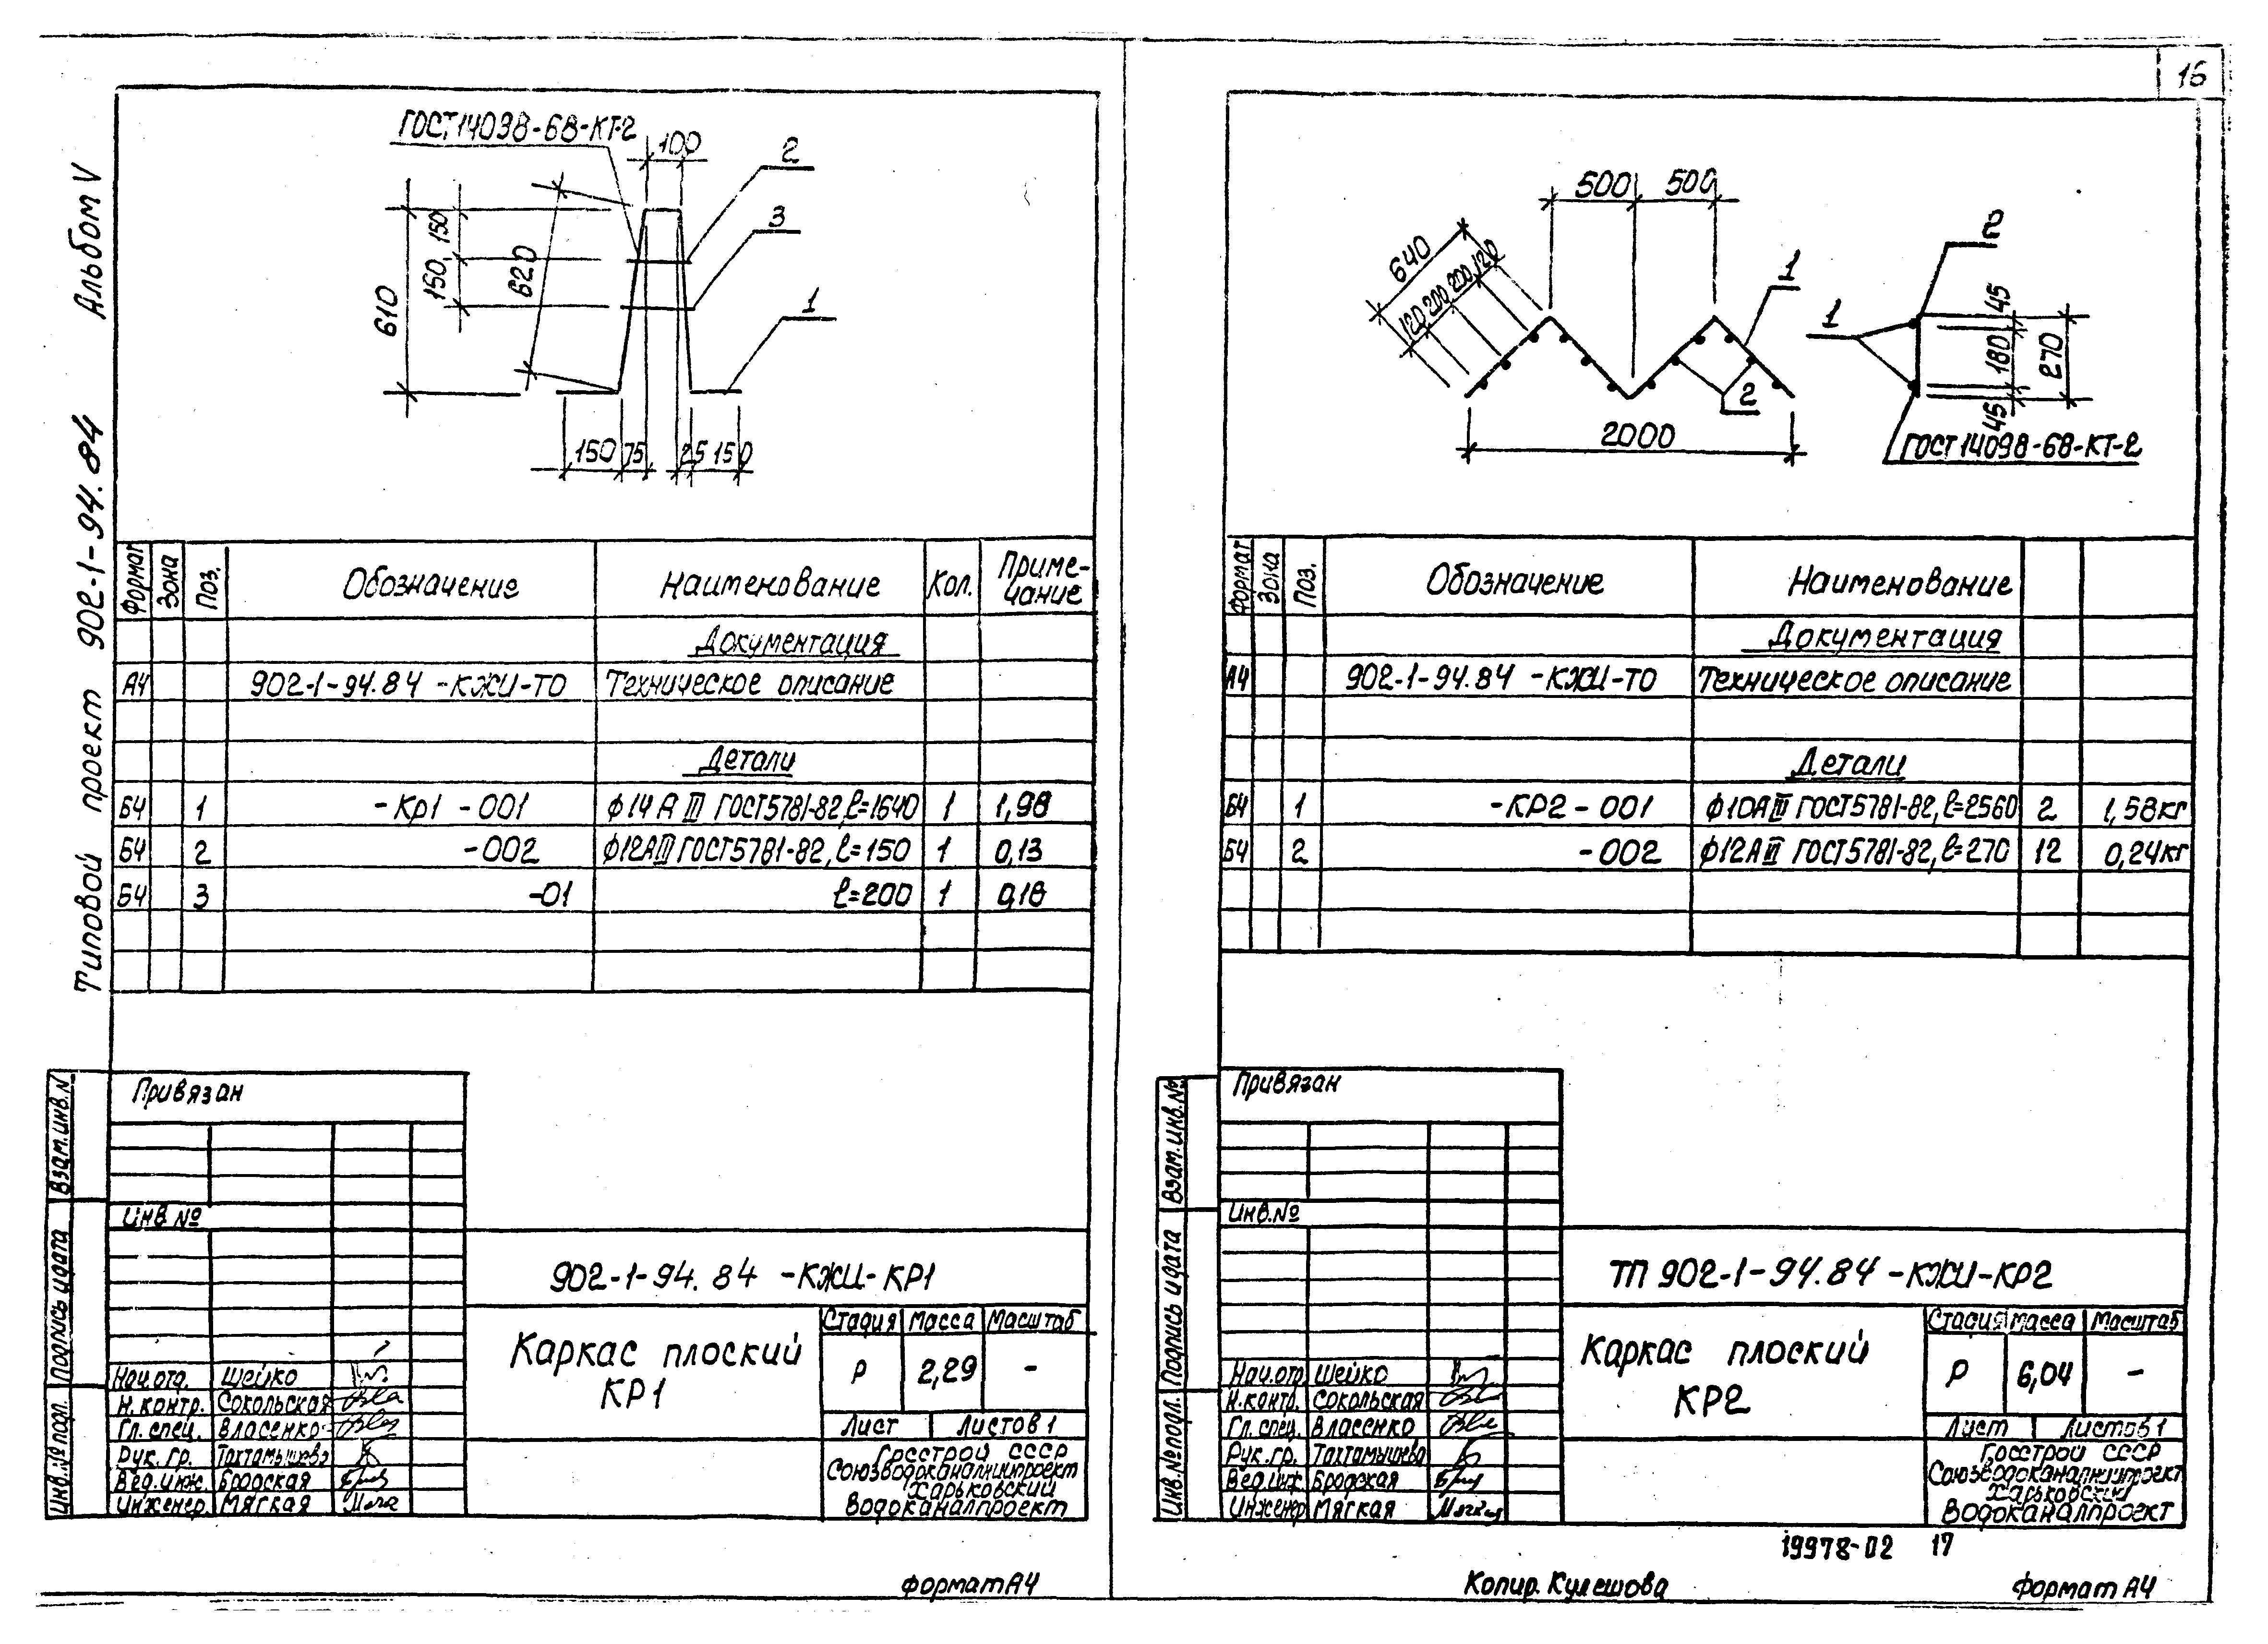 16
Альбом V
Типовой проект 902-1-94.84
ГОСТ14098-68-КТ-2
100
2
3
1
150
150
620
610
150 75 25 150
Формат Зона Поз. Обозначение Наименование Кол. Приме-
чание
Документация
А4 902-1-94.84-КЖИ-ТО Техническое описание
Детали
Б4 1 -Кр1-001 ф14АIII ГОСТ5781-82,ℓ=1640 1 1,98
Б4 2 -002 ф12АIII ГОСТ5781-82,ℓ=150 1 0,13
Б4 3 -01 ℓ=200 1 0,18
Привязан
Инв №
Взам.инв.№
Подпись и дата
Инв.№ подл.
902-1-94.84-КЖИ-КР1
Каркас плоский
КР1
Стадия Масса Масштаб
Р 2,29 -
Лист Листов 1
Нач.отд. Шейко
Н.контр. Сокольская
Гл.спец. Власенко
Рук.гр. Тахтамышева
Вед.инж. Бродская
Инженер. Мягкая
Госстрой СССР
Союзводоканалниипроект
Харьковский
Водоканалпроект
Формат А4
500 500
640
120 200 200 120
1
2
2000
2
1
45
180
45
270
ГОСТ14098-68-КТ-2
Формат Зона Поз. Обозначение Наименование
Документация
А4 902-1-94.84-КЖИ-ТО Техническое описание
Детали
Б4 1 -КР2-001 ф10АIII ГОСТ5781-82,ℓ=2560 2 1,58кг
Б4 2 -002 ф12АIII ГОСТ5781-82,ℓ=270 12 0,24кг
Привязан
Инв.№
Взам.инв.№
Подпись и дата
Инв.№ подл.
ТП 902-1-94.84-КЖИ-КР2
Каркас плоский
КР2
Стадия Масса Масштаб
Р 6,04 -
Лист Листов 1
Нач.отд Шейко
Н.контр. Сокольская
Гл.спец. Власенко
Рук.гр. Тахтамышева
Вед.инж. Бродская
Инженер Мягкая
Госстрой СССР
Союзводоканалниипроект
Харьковский
Водоканалпроект
19978-02 17
Копир. Кулешова
Формат А4